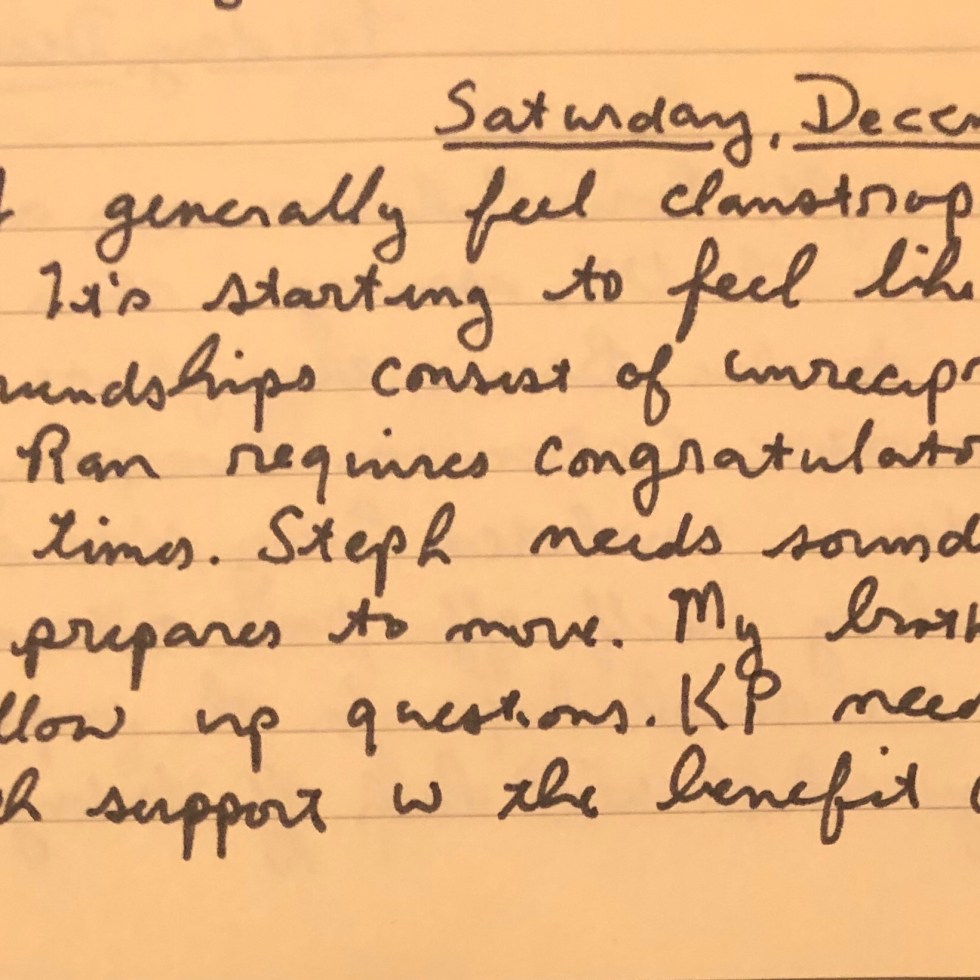 Saturday, Decem
I generally feel claustrop
It's starting to feel like
riendships consist of unrecipr
Ran requires congratulato
times. Steph needs sound
prepares to move. My broth
llow up questions. KP need
ch support w the benefit